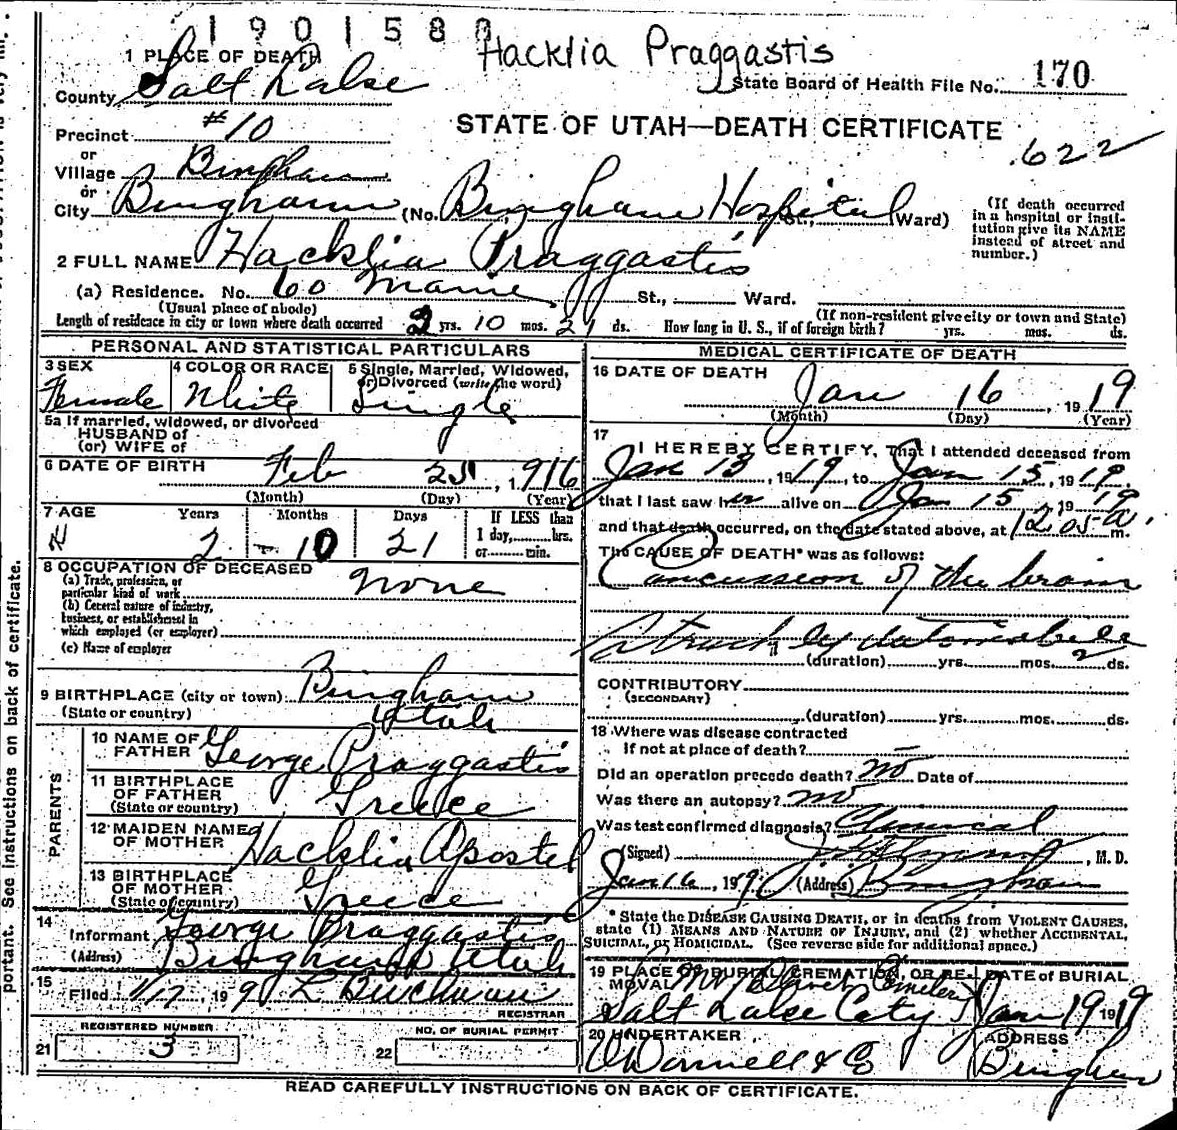 1901580
Hacklia Praggastis
1 PLACE OF DEATH
State Board of Health File No. 170
County Salt Lake
STATE OF UTAH—DEATH CERTIFICATE
.622
Precinct #10
or
Village Bingham
or
City Bingham (No. Bingham Hospital St., Ward)
(If death occurred in a hospital or institution give its NAME instead of street and number.)
2 FULL NAME Hacklia Praggastis
(a) Residence. No. 60 Main St., Ward.
(Usual place of abode)
(If non-resident give city or town and State)
Length of residence in city or town where death occurred 2 yrs. 10 mos. 21 ds. How long in U. S., if of foreign birth? yrs. mos. ds.
PERSONAL AND STATISTICAL PARTICULARS
3 SEX
Female
4 COLOR OR RACE
White
5 Single, Married, Widowed, or Divorced (write the word)
Single
5a If married, widowed, or divorced
HUSBAND of
(or) WIFE of
6 DATE OF BIRTH Feb 25, 1916
(Month) (Day) (Year)
7 AGE Years Months Days If LESS than
2 10 21 1 day, hrs.
or min.
8 OCCUPATION OF DECEASED
(a) Trade, profession, or
particular kind of work none
(b) General nature of industry,
business, or establishment in
which employed (or employer)
(c) Name of employer
9 BIRTHPLACE (city or town) Bingham
(State or country) Utah
PARENTS
10 NAME OF FATHER George Praggastis
11 BIRTHPLACE OF FATHER Greece
(State or country)
12 MAIDEN NAME OF MOTHER Hacklia Apostel
13 BIRTHPLACE OF MOTHER Greece
(State or country)
14
Informant George Praggastis
(Address) Bingham Utah
15
Filed 1/17, 1919 L Buchman
REGISTRAR
REGISTERED NUMBER
21 3
NO. OF BURIAL PERMIT
22
MEDICAL CERTIFICATE OF DEATH
16 DATE OF DEATH
Jan 16, 1919
(Month) (Day) (Year)
17
I HEREBY CERTIFY, That I attended deceased from
Jan 13, 1919, to Jan 15, 1919.
that I last saw her alive on Jan 15 1919
and that death occurred, on the date stated above, at 12 05 a. m.
The CAUSE OF DEATH* was as follows:
Concussion of the brain
Struck by automobile
(duration) yrs. mos. 2 ds.
CONTRIBUTORY
(SECONDARY)
(duration) yrs. mos. ds.
18 Where was disease contracted
If not at place of death? –
Did an operation precede death? no Date of
Was there an autopsy? no
What test confirmed diagnosis? Clinical
(Signed) , M. D.
Jan 16, 1919 (Address) Bingham
* State the DISEASE CAUSING DEATH, or in deaths from VIOLENT CAUSES,
state (1) MEANS AND NATURE OF INJURY, and (2) whether ACCIDENTAL,
SUICIDAL, or HOMICIDAL. (See reverse side for additional space.)
19 PLACE OF BURIAL, CREMATION, OR REMOVAL
Mt Olivet Cemetery
Salt Lake City
DATE of BURIAL
Jan 19 1919
20 UNDERTAKER
O'Donnell & Co
ADDRESS
Bingham
READ CAREFULLY INSTRUCTIONS ON BACK OF CERTIFICATE.
portant. See instructions on back of certificate.